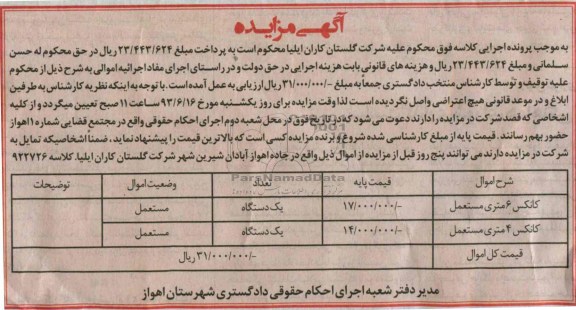 آگهی مزایده
به موجب پرونده اجرایی کلاسه فوق محکوم علیه شرکت گلستان کاران ایلیا محکوم است به پرداخت مبلغ ۲۳/۴۴۳/۶۲۴ ریال در حق محکوم له حسن
سلمانی و مبلغ ۲۳/۴۴۳/۶۲۴ ریال و هزینه های قانونی بابت هزینه اجرایی در حق دولت و در راستای اجرای مفاد اجرائیه اموالی به شرح ذیل از محکوم
علیه توقیف و توسط کارشناس منتخب دادگستری جمعا به مبلغ -/۳۱/۰۰۰/۰۰۰ ریال ارزیابی به عمل آمده است. با توجه به اینکه نظریه کارشناس به طرفین
ابلاغ و در موعد قانونی هیچ اعتراضی واصل نگردیده است لذا وقت مزایده برای روز یکشنبه مورخ ۹۳/۶/۱۶ ساعت ۱۱ صبح تعیین میگردد و از کلیه
اشخاصی که قصد شرکت در مزایده را دارند دعوت می شود که در تاریخ فوق در محل شعبه دوم اجرای احکام حقوقی واقع در مجتمع قضایی شماره ۱ اهواز
حضور بهم رسانند. قیمت پایه از مبلغ کارشناسی شده شروع و برنده مزایده کسی است که بالاترین قیمت را پیشنهاد نماید، ضمنا اشخاصیکه تمایل به
شرکت در مزایده دارند می توانند پنج روز قبل از مزایده از اموال ذیل واقع در جاده اهواز آبادان شیرین شهر شرکت گلستان کاران ایلیا. کلاسه ۹۲۲۷۲۶
ParsNamadData
شرح اموال قیمت پایه تعداد وضعیت اموال توضیحات
کانکس ۶ متری مستعمل -/۱۷/۰۰۰/۰۰۰ یک دستگاه مستعمل
کانکس ۴ متری مستعمل -/۱۴/۰۰۰/۰۰۰ یک دستگاه مستعمل
قیمت کل اموال -/۳۱/۰۰۰/۰۰۰ ریال
مدیر دفتر شعبه اجرای احکام حقوقی دادگستری شهرستان اهواز